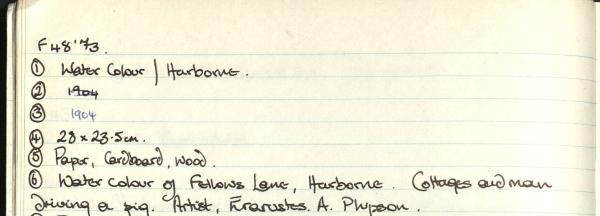 F48'73.
① Water Colour / Harborne.
② 1904
③ 1904
④ 28 x 23.5cm.
⑤ Paper, Cardboard, Wood.
⑥ Water colour of Fellows Lane, Harborne. Cottages and man
driving a pig. Artist, Evarustes. A. Phipson.